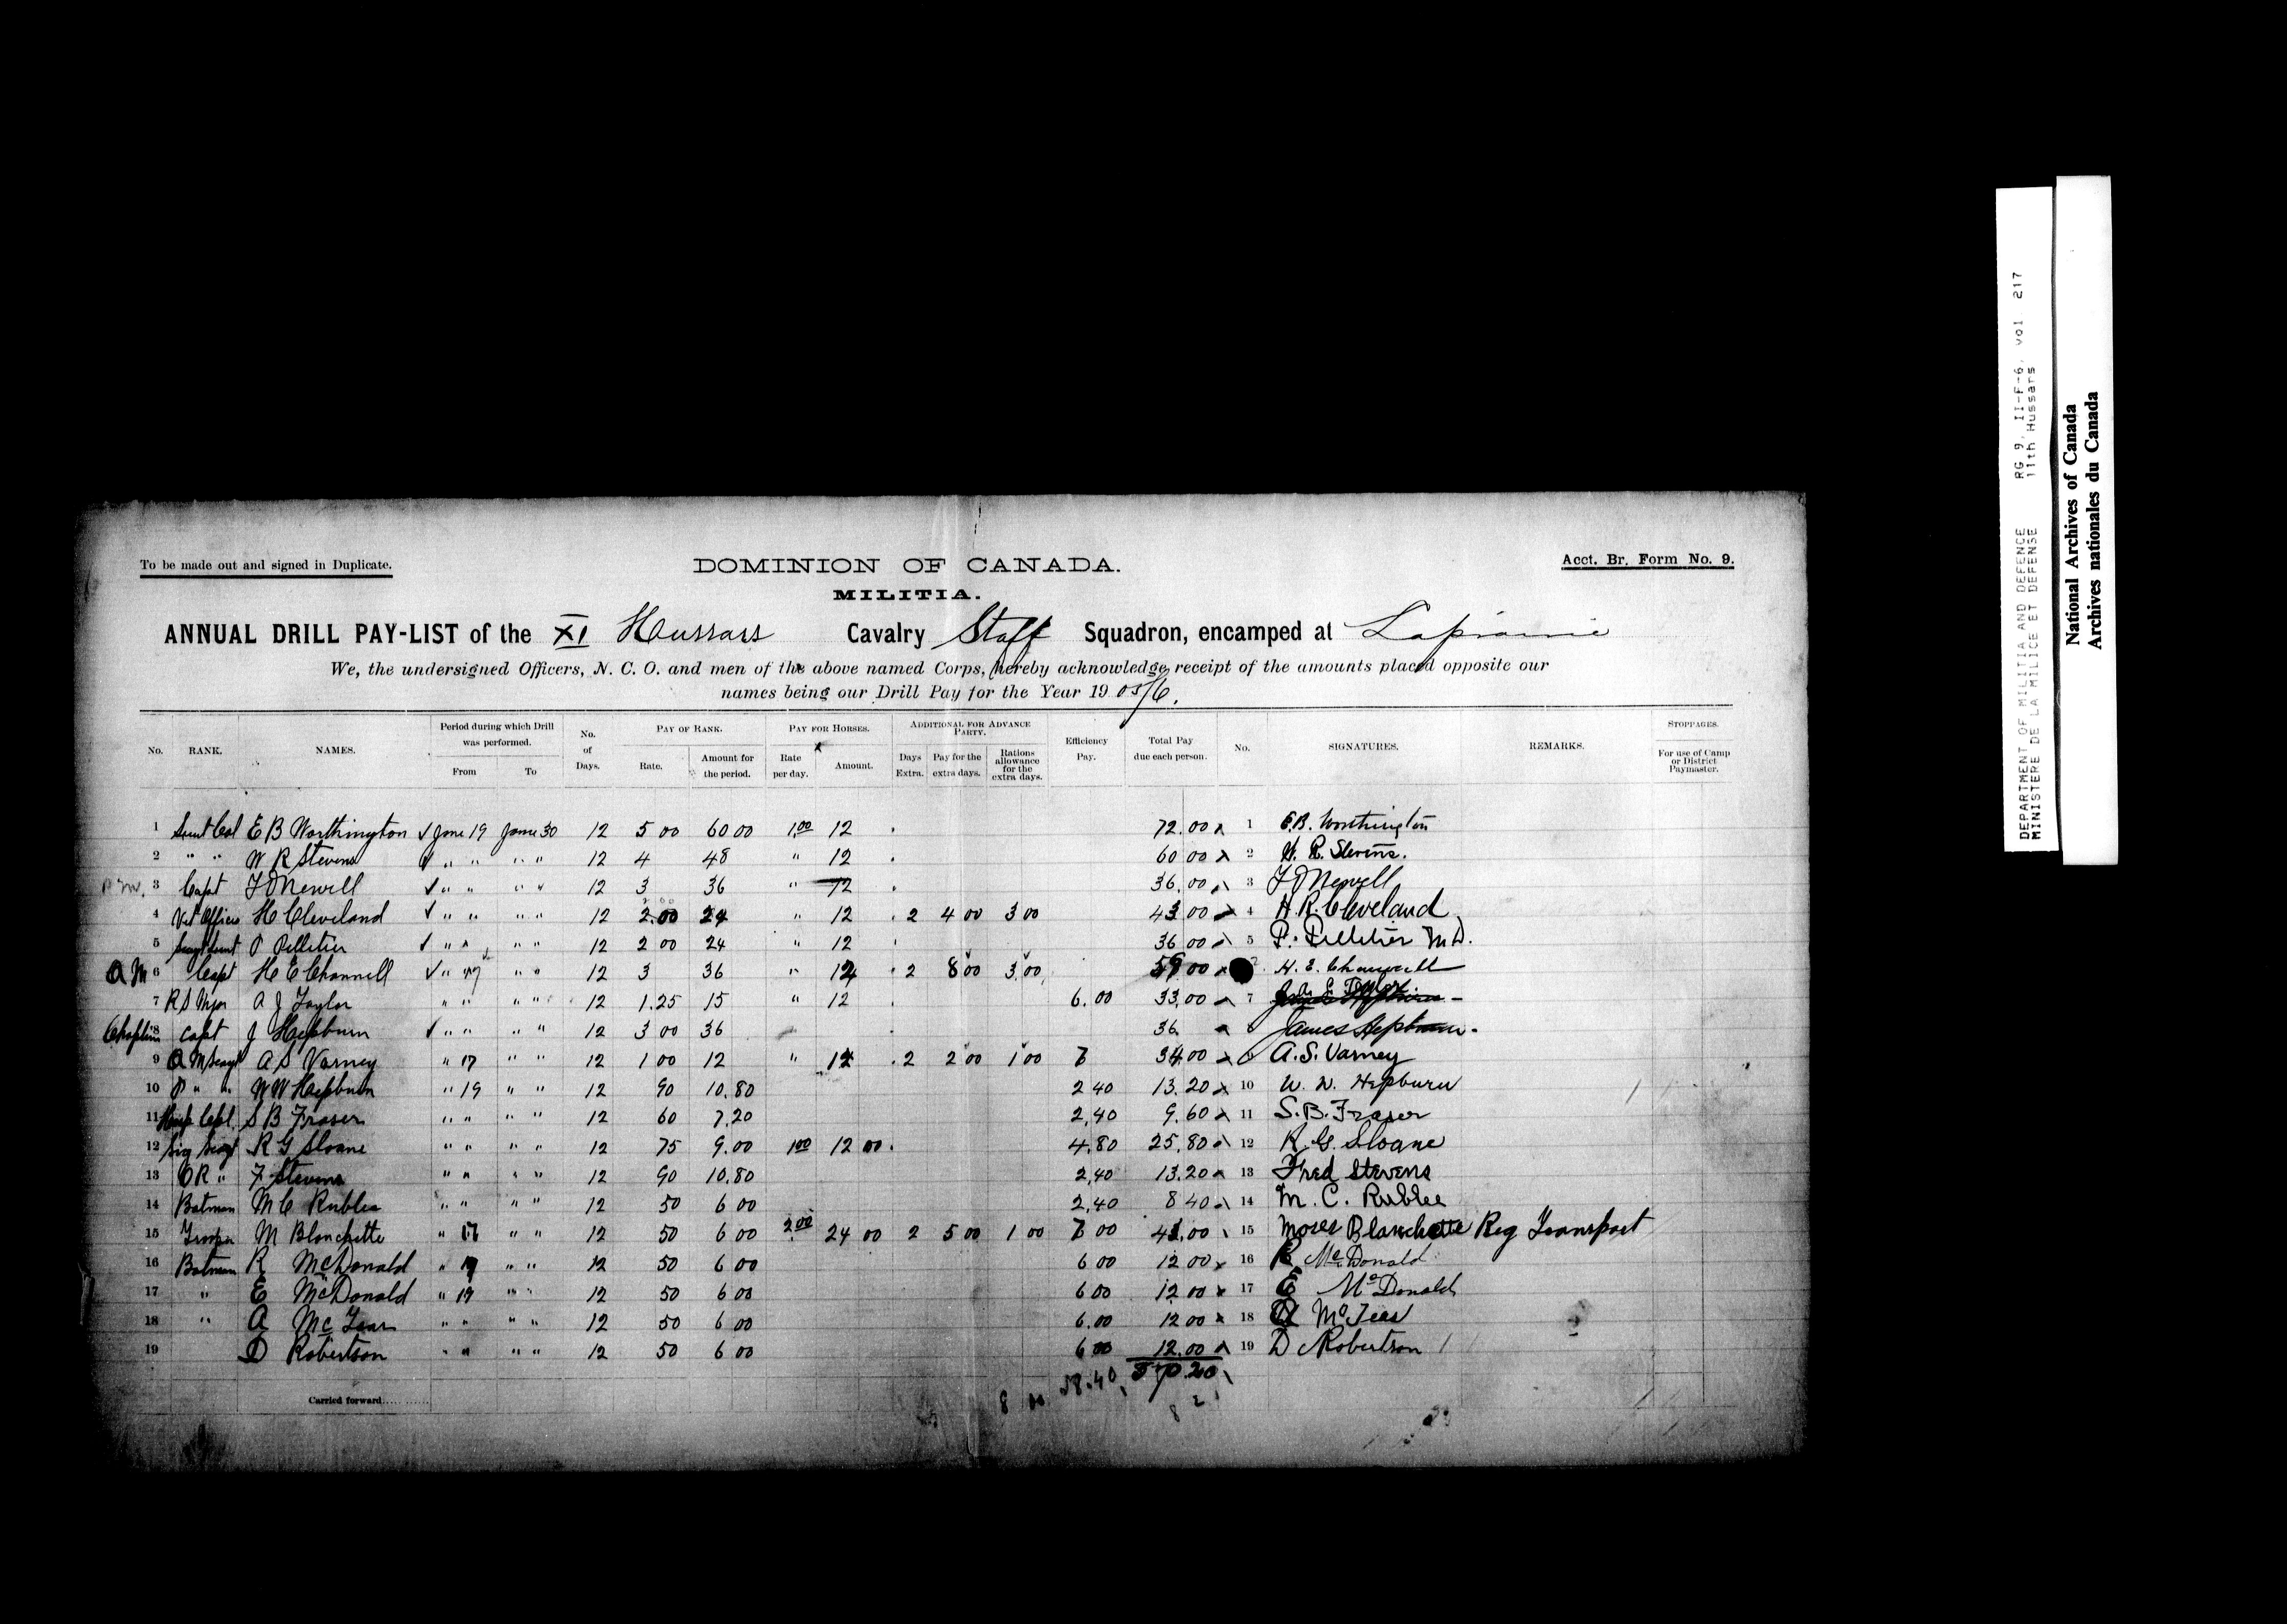 To be made out and signed in Duplicate.
DOMINION OF CANADA.
Acct. Br. Form No. 9.
MILITIA.
ANNUAL DRILL PAY-LIST of the XI Hussars Cavalry Staff Squadron, encamped at Laprairie
We, the undersigned Officers, N. C. O. and men of the above named Corps, hereby acknowledge receipt of the amounts placed opposite our
names being our Drill Pay for the Year 19 05/6.
No. RANK. NAMES. Period during which Drill was performed. From To No. of Days. PAY OF RANK. Rate. Amount for the period. PAY FOR HORSES. Rate per day. Amount. ADDITIONAL FOR ADVANCE PARTY. Days Extra. Pay for the extra days. Rations allowance for the extra days. Efficiency Pay. Total Pay due each person. No. SIGNATURES. REMARKS. STOPPAGES. For use of Camp or District Paymaster.
1 Lieut Col E B Worthington √ June 19 June 30 12 5 00 60 00 1.00 12 72.00 1 E.B. Worthington
2 " " W R Stevens √ " " " " 12 4 48 " 12 60 00 2 W. R. Stevens.
3 Capt F D Newell √ " " " " 12 3 36 " 12 36.00 3 F D Newell
4 Vet Officer H Cleveland √ " " " " 12 2.00 24 " 12 2 4 00 3 00 43 00 4 H. R. Cleveland
5 P Pelletier √ " " " " 12 2 00 24 " 12 36 00 5 P. Pelletier M.D.
Q M 6 Capt H E Channell √ " 17 " " 12 3 36 " 12 2 8 00 3 00 59 00 H. E. Channell
7 R S Mjor A J Taylor " " " " 12 1.25 15 " 12 6.00 33.00 7 A. J. Taylor
Chaplin 8 Capt J Hepburn √ " " " " 12 3 00 36 36 James Hepburn
9 Q M Sergt A S Varney " 17 " " 12 1 00 12 " 12 2 2 00 1 00 7 34 00 A. S. Varney
10 P " " W W Hepburn " 19 " " 12 90 10.80 2 40 13.20 10 W. W. Hepburn
11 Corpl. S B Fraser " " " " 12 60 7.20 2.40 9.60 11 S. B. Fraser
12 Sig Sergt R G Sloane " " " " 12 75 9.00 1 00 12 00 4.80 25.80 12 R. G. Sloane
13 O R " F Stevens " " " " 12 90 10.80 2.40 13.20 13 Fred Stevens
14 Batman M C Rublee " " " " 12 50 6 00 2.40 8 40 14 M. C. Rublee
15 Trooper M Blanchette " 17 " " 12 50 6 00 2 00 24 00 2 5 00 1 00 7 00 43.00 15 Moses Blanchette Reg Transport
16 Batman R McDonald " 19 " " 12 50 6 00 6 00 12 00 16 R McDonald
17 " E McDonald " 19 " " 12 50 6 00 6 00 12 00 17 E McDonald
18 " A " " " " 12 50 6 00 6.00 12 00 18 A
19 D Robertson " " " " 12 50 6 00 6 00 12.00 19 D Robertson
58.40 570.20
Carried forward
DEPARTMENT OF MILITIA AND DEFENCE RG 9, II-F-6, vol 217
MINISTERE DE LA MILICE ET DEFENSE 11th Hussars
National Archives of Canada
Archives nationales du Canada